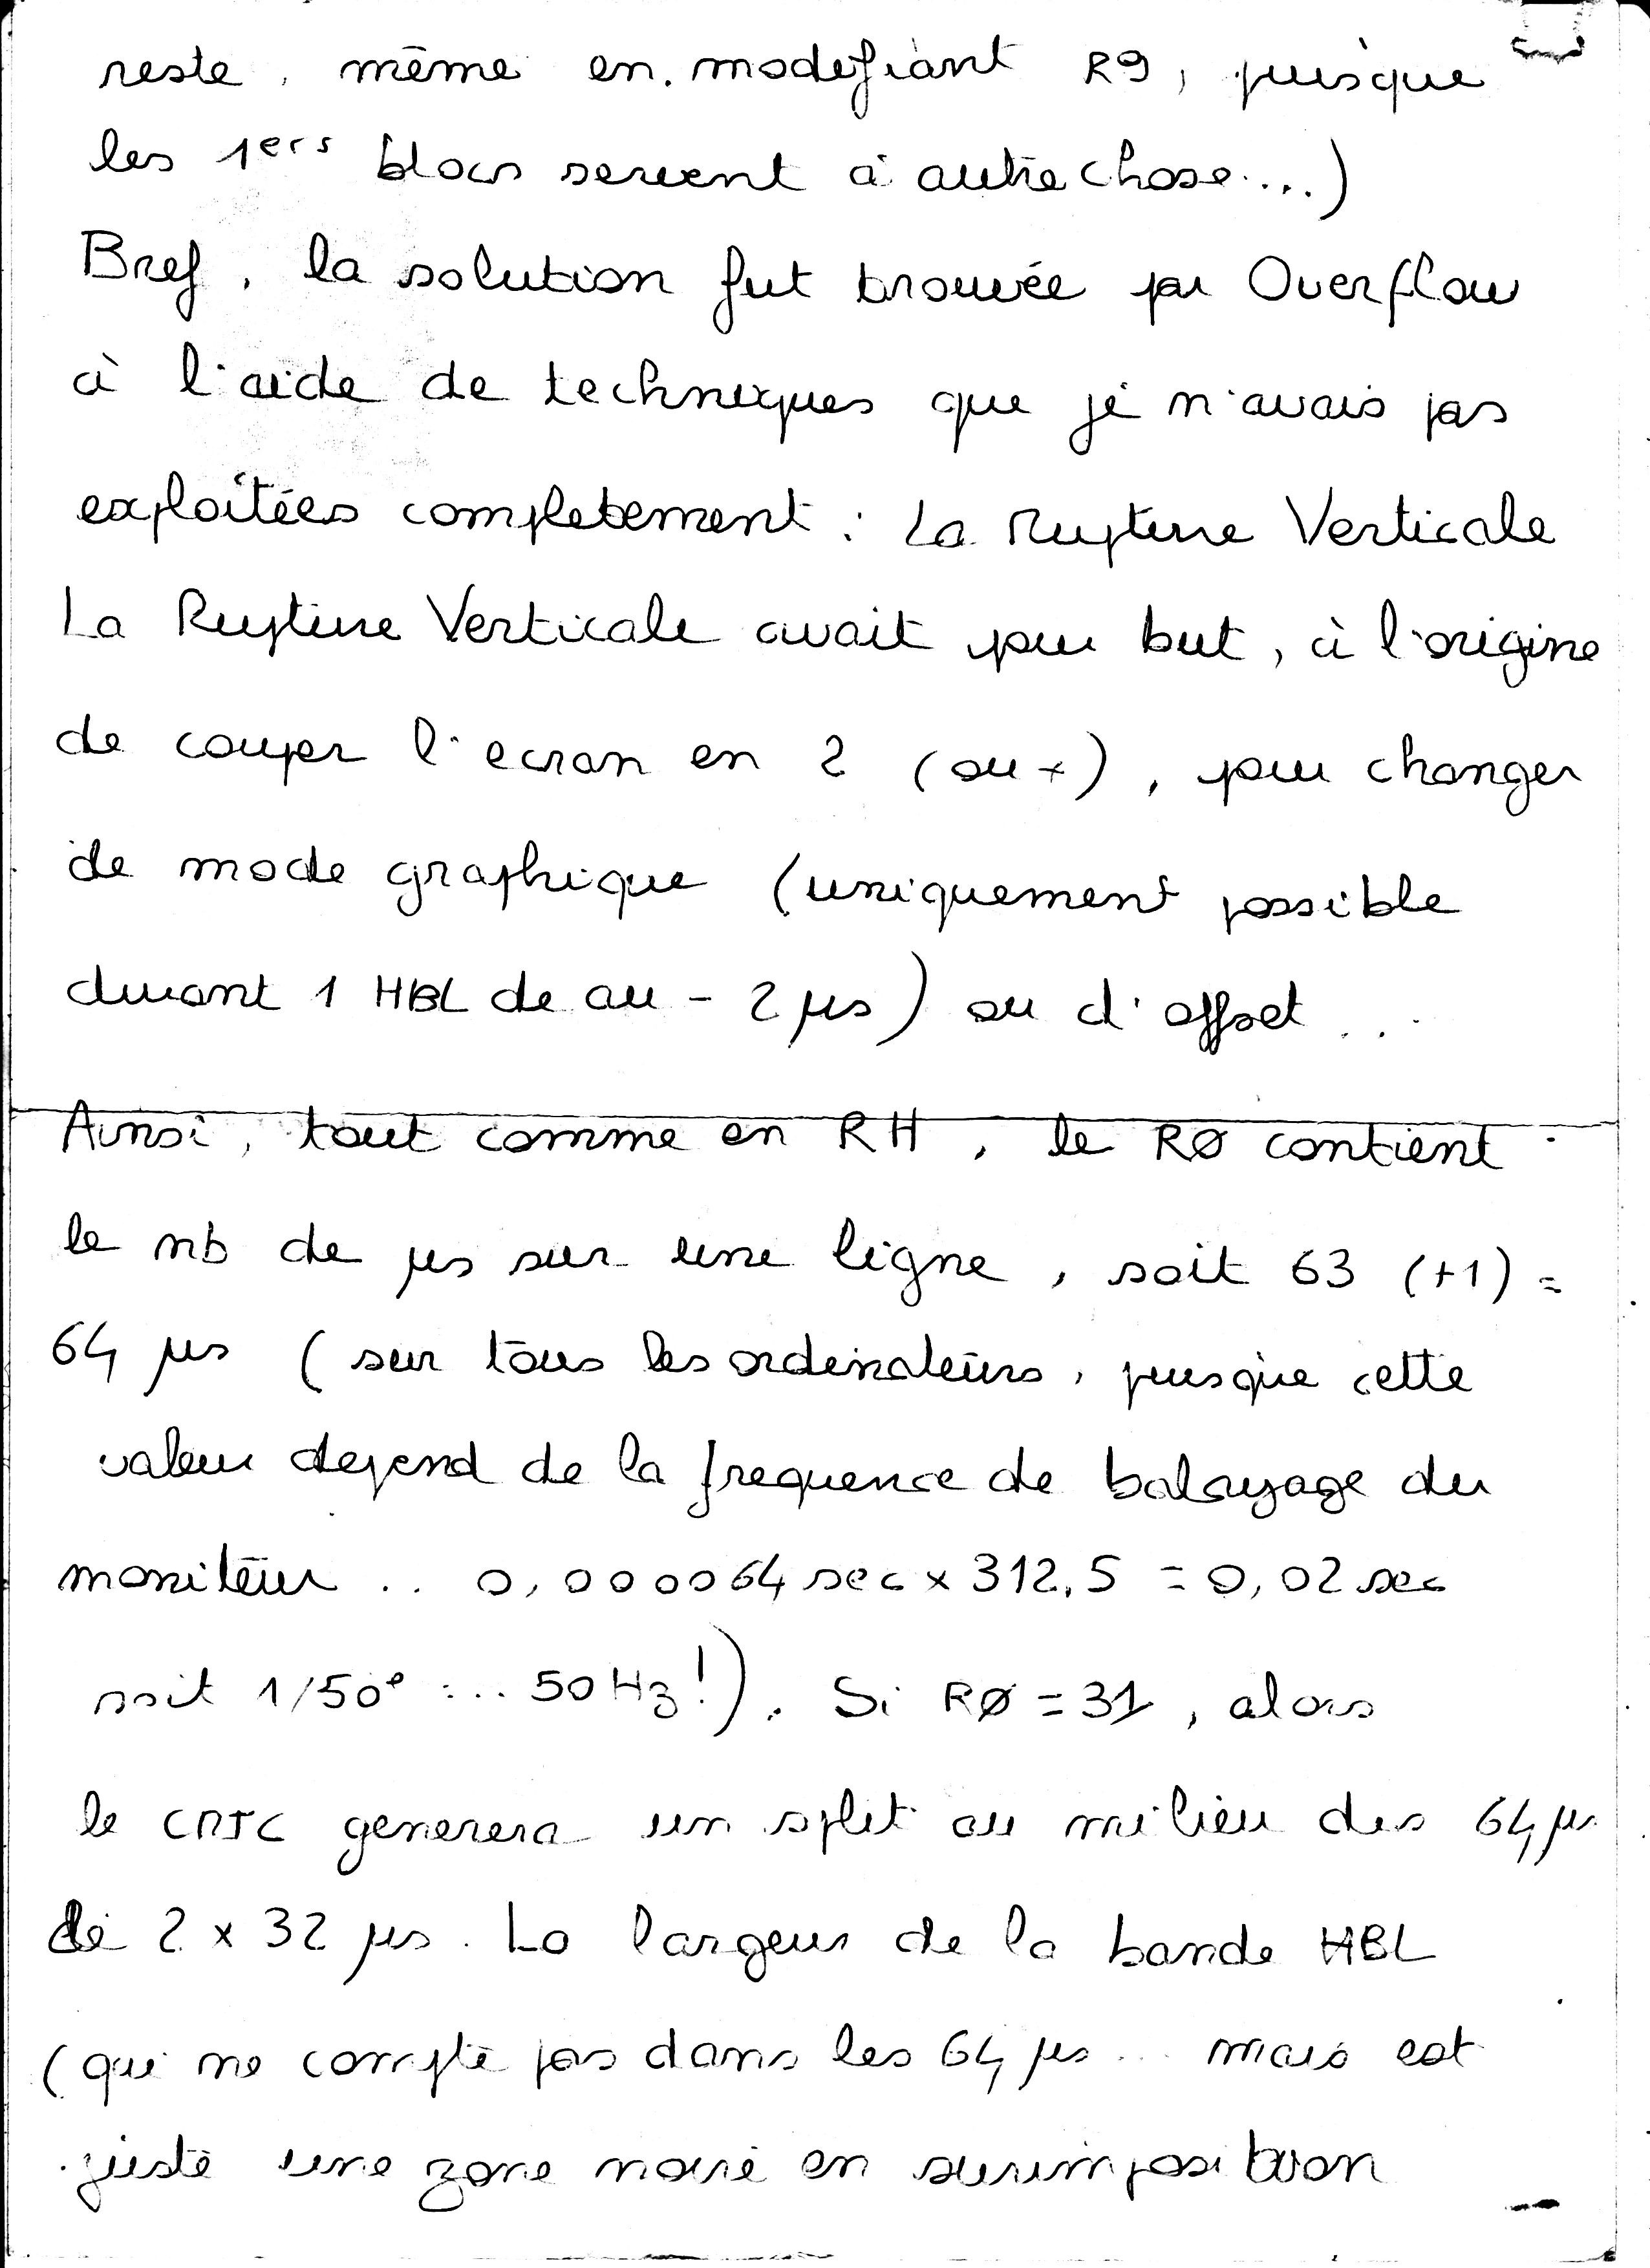 reste, même en modifiant R9, puisque
les 1ers blocs servent à autre chose...)
Bref, la solution fut trouvée par Overflow
à l'aide de techniques que je n'avais pas
exploitées completement : La Rupture Verticale
La Rupture Verticale avait pour but, à l'origine
de couper l'ecran en 2 (ou +), pour changer
de mode graphique (uniquement possible
durant 1 HBL de au - 2 µs) ou d'offset...
Ainsi, tout comme en RH, le RØ contient
le nb de µs sur une ligne, soit 63 (+1) =
64 µs (sur tous les ordinateurs, puisque cette
valeur depend de la frequence de balayage du
moniteur .. 0,000064 sec x 312,5 = 0,02 sec
soit 1/50e :... 50 Hz!). Si RØ = 31, alors
le CRTC generera un split au milieu des 64 µs
de 2 x 32 µs. La largeur de la bande HBL
(qui ne compte pas dans les 64 µs... mais est
juste une zone noire en surimposition